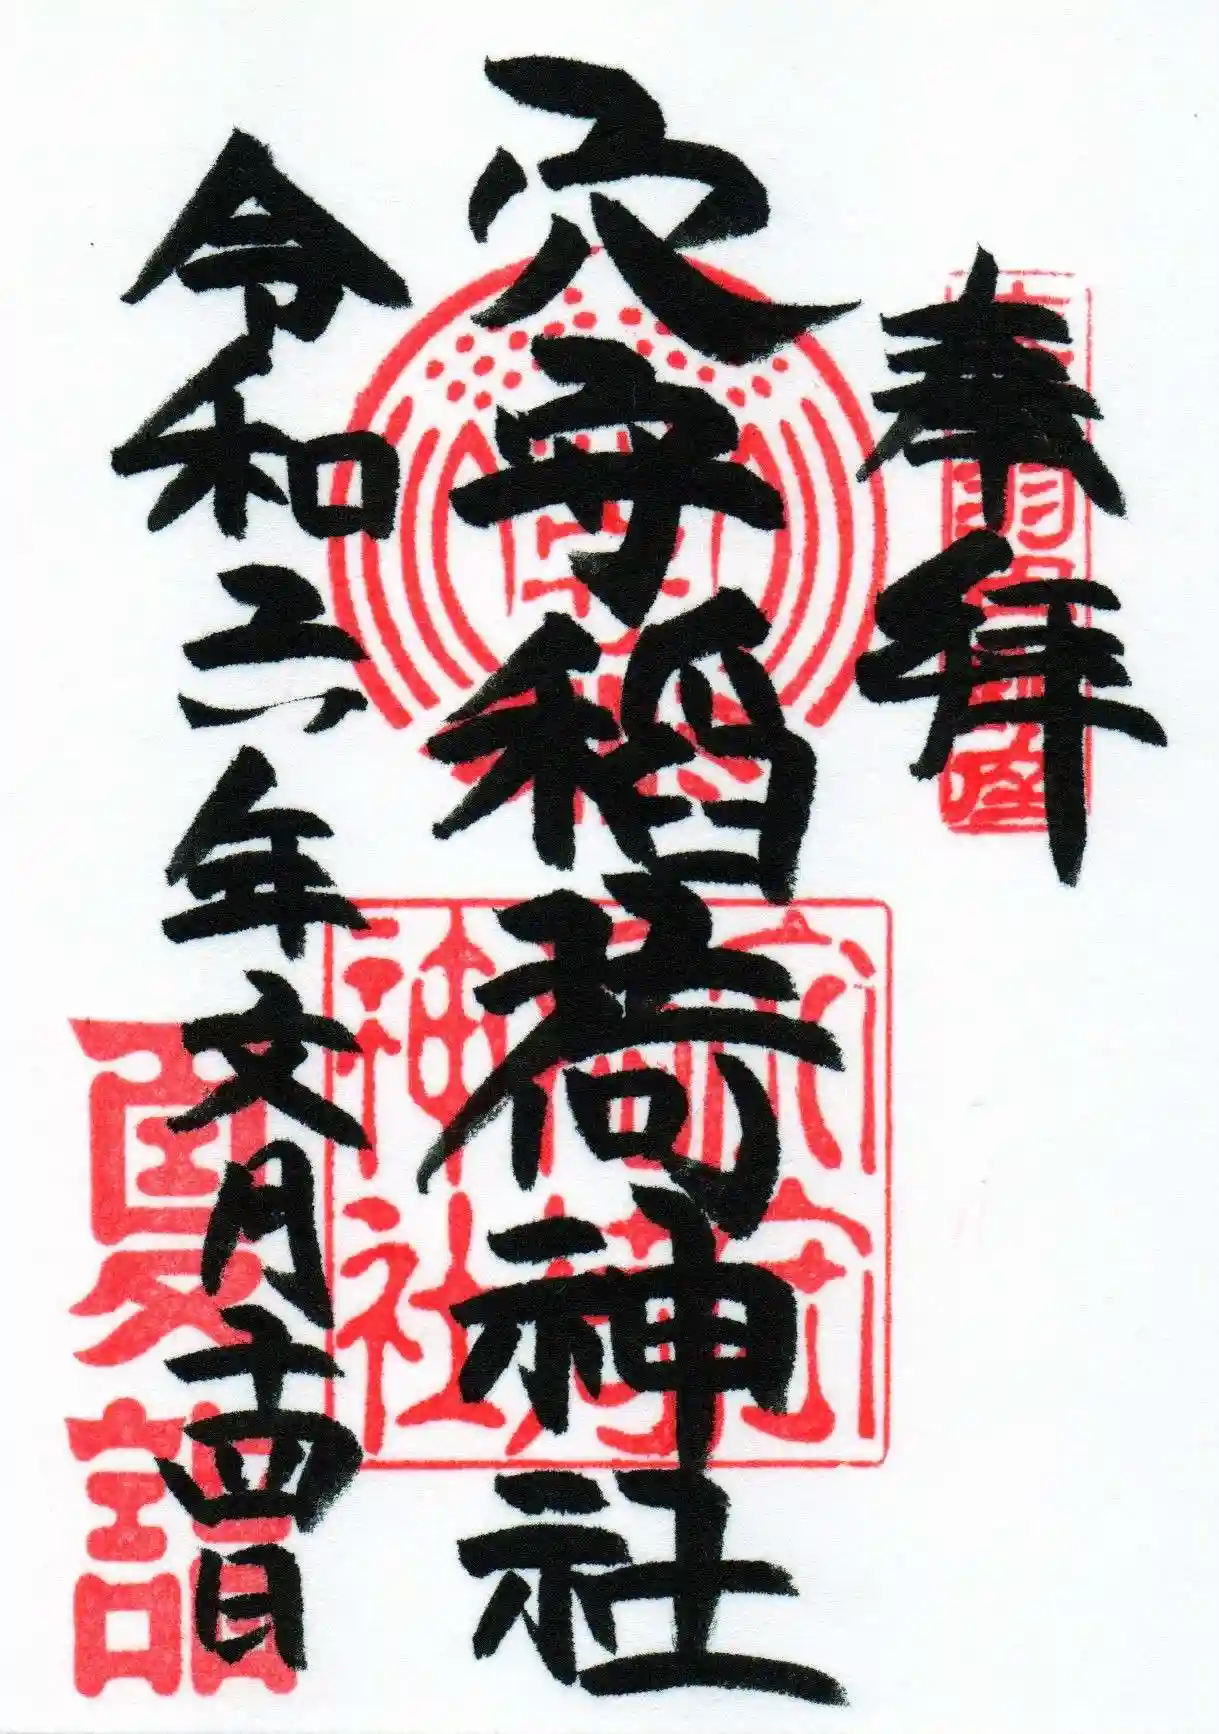 奉拝
穴守稲荷神社
令和六年文月十四日
穴守
稲荷
神社
夏詣